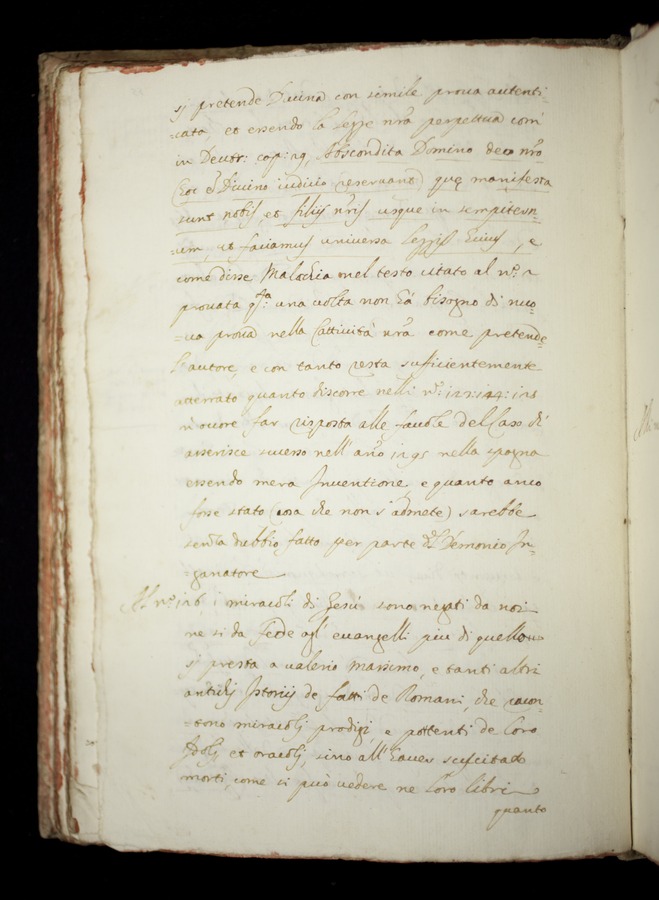 si pretende Divina con simile prova autenti-
=cata et essendo la legge nr̃a perpettua com'
in Deutr: cap: 29, Abscondita Domino deo nr̃o
(hoc e Divino iudicio reservano) quę manifesta
sunt nobis et filijs nr̃is usque in sempitern-
um, ut faciamus universa leggis huius, e
come disse Malachia nel testo citato al n.º 2
provata q.ta una volta non há bisogno di nuo-
=va prova nella Cattività nr̃a come pretende
l'autore, e con tanto resta sufficientemente
atterrato quanto discorre nelli n.i 123: 124: 125
far risposta alle favole del Caso di
asserisce sucesso nell'año 1295 nella spagna
essendo mera Inventione, e quanto anco
fosse stato (cosa che non s'admete) sarebbe
senza dubbio fatto per parte del Demonio In-
ganatore
Al n.º 126 i miracoli di Gesù sono negati da noi
ne si da fede agl'euangelli piu di quello
si presta a valerio massimo, e tanti altri
antichi Istorij de fatti de Romani, che racon-
=tono miracoli prodigi, e portenti de loro
Idoli et oracoli, sino all'haver suscitado
morti, come si può vedere ne loro libri
quanto